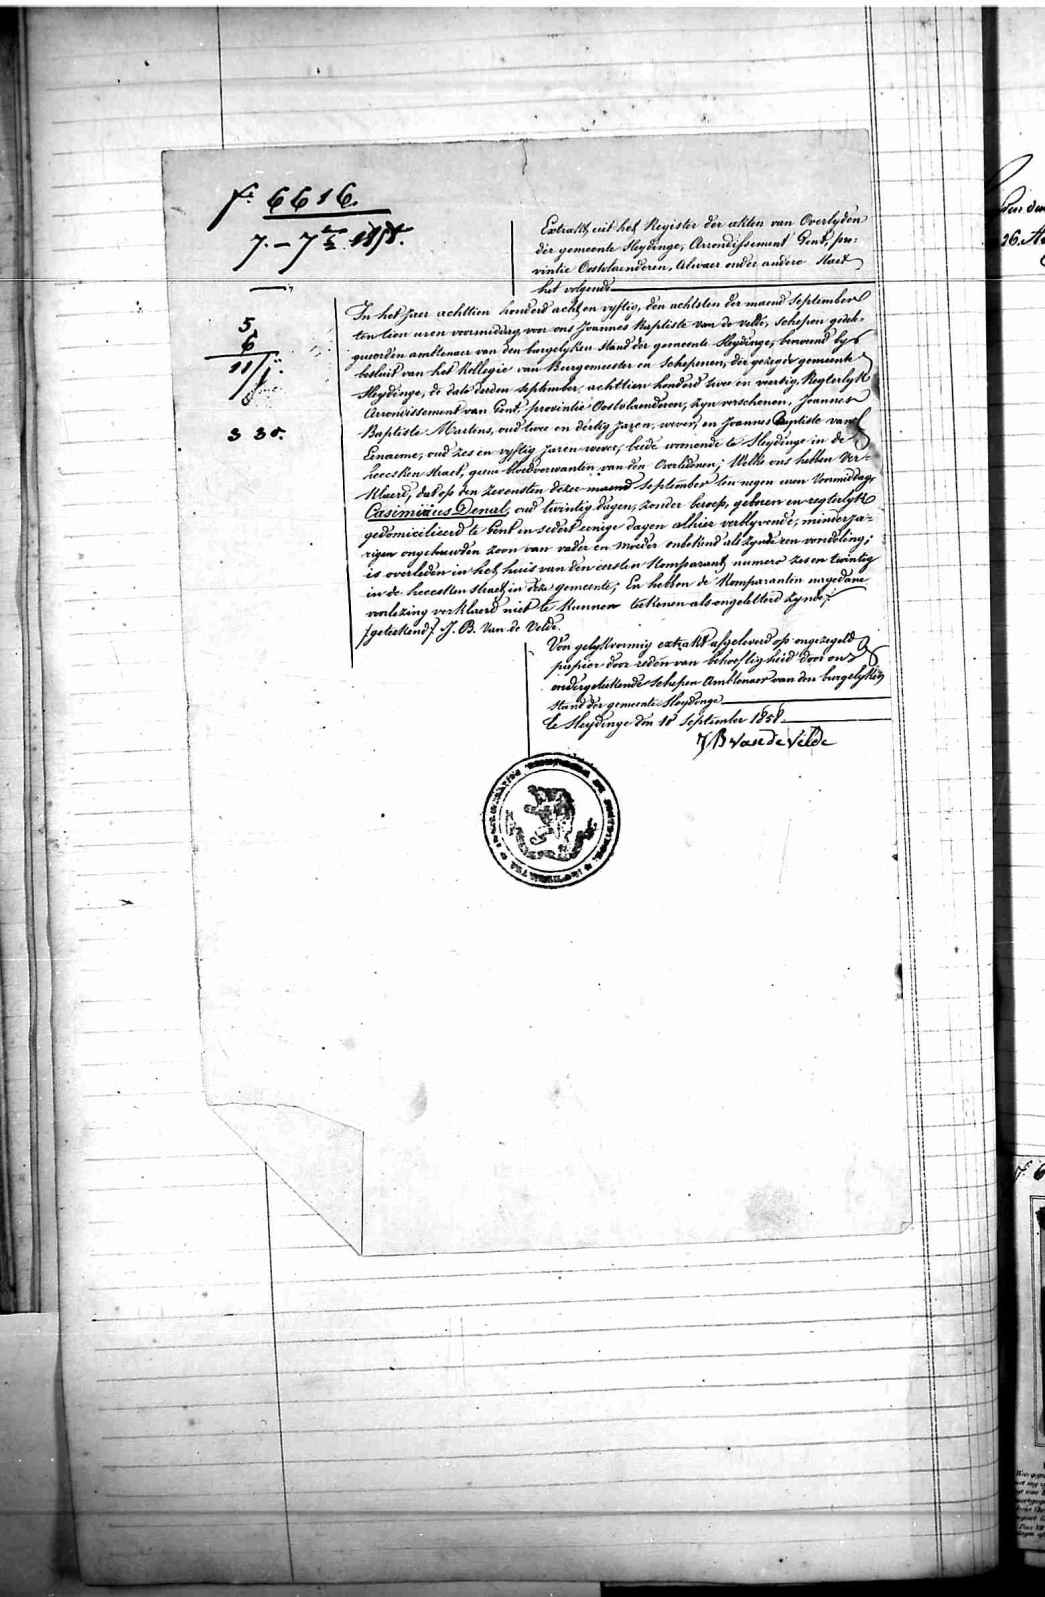 f° 6616.
7 - 7bre 1858.
5
6
11/
3 30.
Extrakt uit het Register der akten van Overlyden
der gemeente Sleydinge, Arrondissement Gent, pro-
vintie Oostvlaenderen, Alwaer onder andere Staet
het volgende
In het jaer achttien honderd acht en vyftig, den achtsten der maend September
ten tien uren voormiddag, voor ons Joannes Baptiste van de Velde, schepen gedele-
gueerden ambtenaer van den burgelyken Stand der gemeente Sleydinge, benoemd by
besluit van het Kollegie van Burgemeester en Schepenen, der gezegde gemeente
Sleydinge, de dato derden September achttien honderd twee en veertig, Regterlyk
Arrondissement van Gent, provintie Oostvlaenderen, zyn verschenen, Joannes
Baptiste Martens, oud twee en dertig jaren, wever, en Joannes Baptiste van
Lenaeme, oud zes en vyftig jaren wever, beide woonende te Sleydinge in de
heeesken straet, geene bloedverwanten van den Overledenen; Welke ons hebben ver-
klaerd, dat op den zevensten dezer maend September ten negen uren Voormiddag,
Casimirus Denul, oud twintig dagen, zonder beroep, geboren en regterlyk
gedomicilieerd te Gent en sedert eenige dagen alhier verblyvende, minderja-
rigen ongehuwden zoon van vader en moeder onbekend als zynde een vondeling;
is overleden in het huis van den eersten Komparant, numero zes en twintig
in de heeesken straet, in deze gemeente; En hebben de Komparanten nagedane
voorlezing verklaerd niet te kunnen teekenen als ongeletterd zynde;
/geteekend/ J. B. Van de Velde.
Von gelykvormig extrakt afgeleverd op ongezegeld
papier door reden van behoeftigheid door ons
ondergeteekende Schepen Ambtenaer van den burgelyken
Stand der gemeente Sleydinge
te Sleydinge den 18 September 1858.
J B Van de Velde